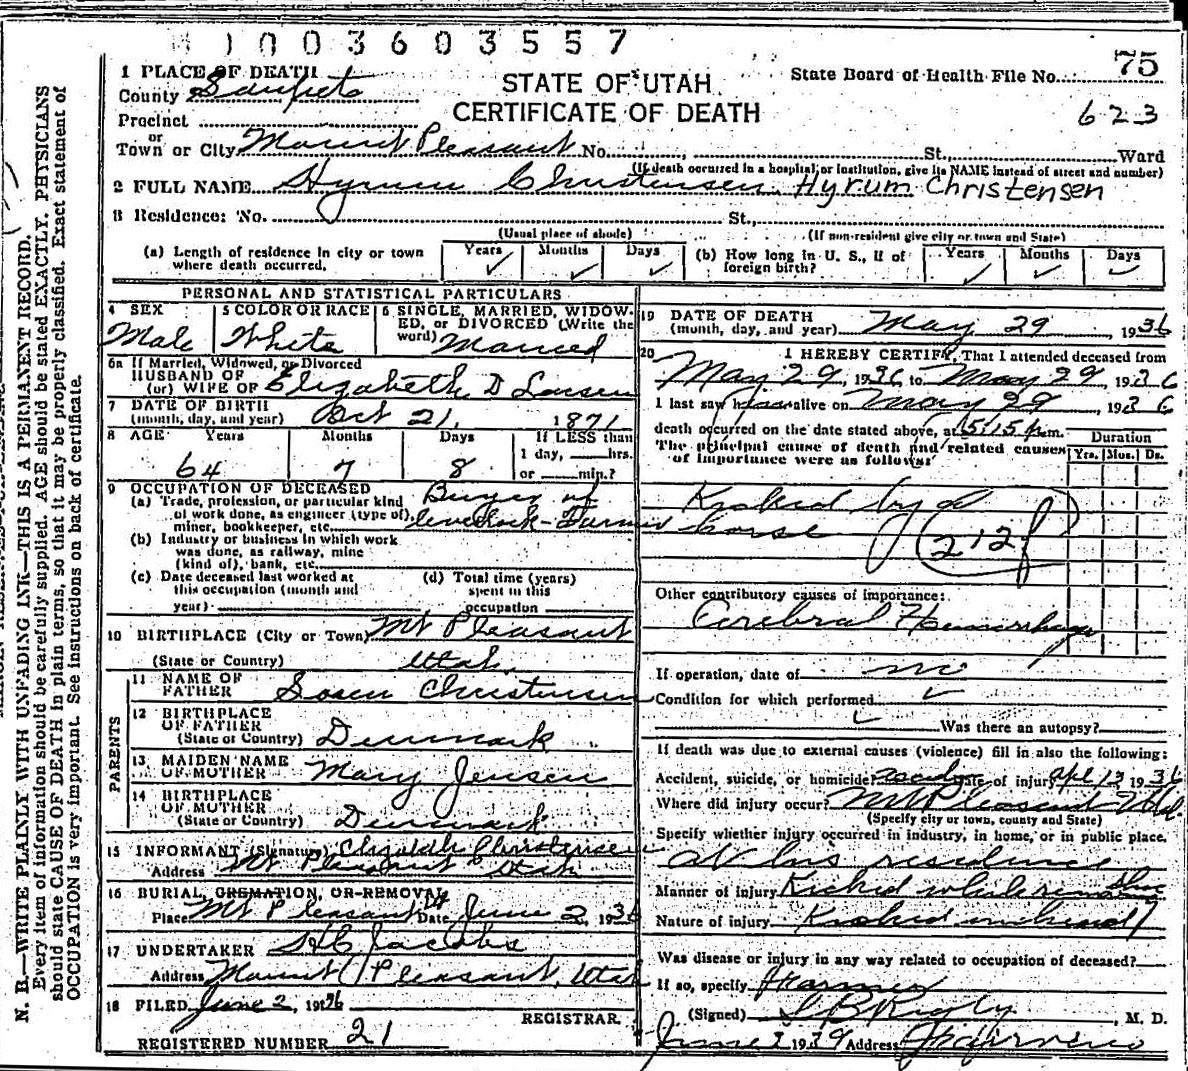 1003603557
1 PLACE OF DEATH
County Sanpete
STATE OF UTAH
CERTIFICATE OF DEATH
State Board of Health File No. 75
623
Precinct
or
Town or City Mount Pleasant No. St. Ward
(If death occurred in a hospital or institution, give its NAME instead of street and number)
2 FULL NAME Hyrum Christensen Hyrum Christensen
3 Residence: No. St.,
(Usual place of abode) (If non-resident give city or town and State)
(a) Length of residence in city or town where death occurred. Years ✓ Months ✓ Days ✓
(b) How long in U. S., if of foreign birth? Years ✓ Months ✓ Days ✓
PERSONAL AND STATISTICAL PARTICULARS
4 SEX
Male
5 COLOR OR RACE
White
6 SINGLE, MARRIED, WIDOWED, or DIVORCED (Write the word)
Married
6a If Married, Widowed, or Divorced
HUSBAND OF
(or) WIFE OF Elizabeth D Larsen
7 DATE OF BIRTH
(month, day, and year) Oct 21, 1871
8 AGE Years Months Days If LESS than
1 day, hrs.
64 7 8 or min.?
9 OCCUPATION OF DECEASED
(a) Trade, profession, or particular kind of work done, as engineer (type of), miner, bookkeeper, etc. Buyer of livestock-Farmer
(b) Industry or business in which work was done, as railway, mine (kind of), bank, etc.
(c) Date deceased last worked at this occupation (month and year)
(d) Total time (years) spent in this occupation
10 BIRTHPLACE (City or Town) Mt Pleasant
(State or Country) Utah
PARENTS
11 NAME OF FATHER Soren Christensen
12 BIRTHPLACE OF FATHER
(State or Country) Denmark
13 MAIDEN NAME OF MOTHER Mary Jensen
14 BIRTHPLACE OF MOTHER
(State or Country) Denmark
15 INFORMANT (Signature) Elizabeth Christensen
Address Mt Pleasant Utah
16 BURIAL, CREMATION, OR REMOVAL
Place Mt Pleasant Date June 2, 1936
17 UNDERTAKER Jacobs
Address Mount Pleasant, Utah
18 FILED June 2, 1936
REGISTRAR.
REGISTERED NUMBER 21
19 DATE OF DEATH
(month, day, and year) May 29 1936
20 I HEREBY CERTIFY, That I attended deceased from
May 29, 1936, to May 29, 1936
I last saw alive on May 29, 1936
death occurred on the date stated above, at 5:15 p.m.
The principal cause of death and related causes of importance were as follows:
Duration
Yrs. Mos. Ds.
Kicked by a
horse
(212f)
Other contributory causes of importance:
Cerebral Hemorrhage
If operation, date of no
Condition for which performed ✓
✓ Was there an autopsy?
If death was due to external causes (violence) fill in also the following:
Accident, suicide, or homicide? Date of injury Apl 13 1936
Where did injury occur? Mt Pleasant Utd.
(Specify city or town, county and State)
Specify whether injury occurred in industry, in home, or in public place.
At his residence
Manner of injury Kicked while
Nature of injury Kicked in head
Was disease or injury in any way related to occupation of deceased?
If so, specify Farmer
(Signed) , M. D.
Address
N. B.—WRITE PLAINLY WITH UNFADING INK—THIS IS A PERMANENT RECORD.
Every item of information should be carefully supplied. AGE should be stated EXACTLY. PHYSICIANS
should state CAUSE OF DEATH in plain terms, so that it may be properly classified. Exact statement of
OCCUPATION is very important. See instructions on back of certificate.